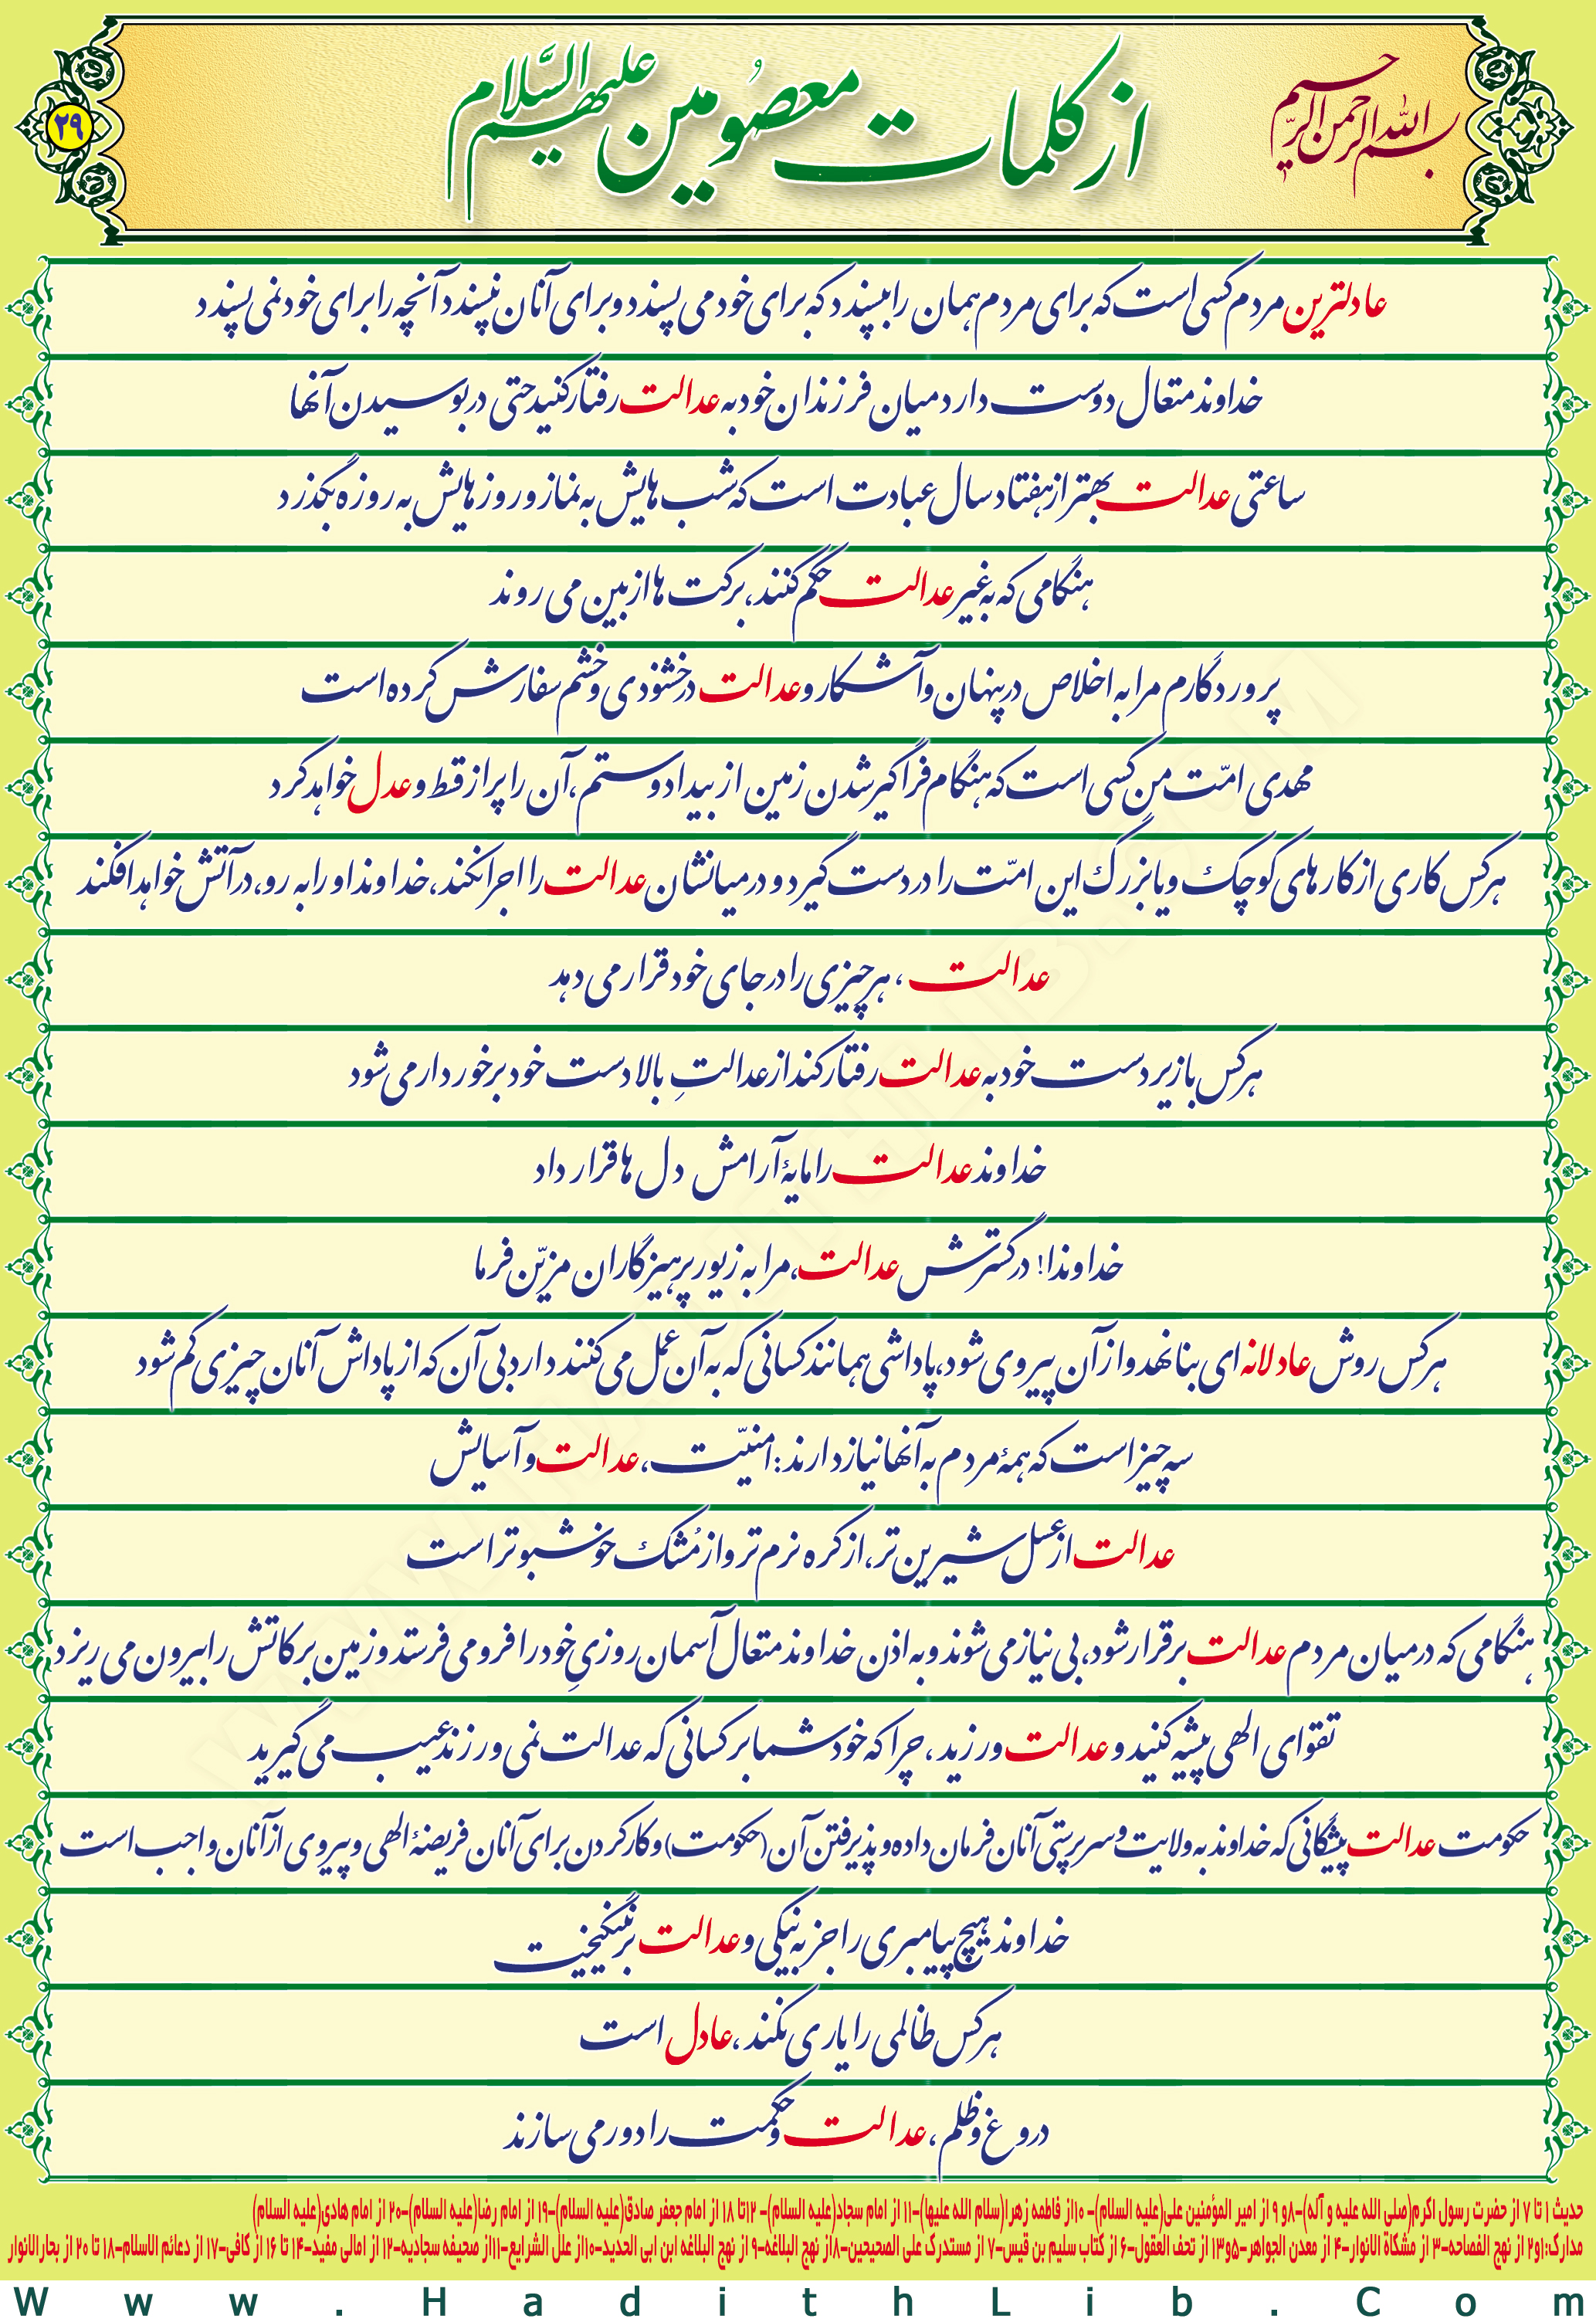 بسم الله الرحمن الرحیم
از کلمات معصُومین علیهم السَّلام
۲۹
عادلترین مردم کسی است که برای مردم همان را بپسندد که برای خود می پسندد و برای آنان نپسندد آنچه را برای خود نمی پسندد
خداوند متعال دوست دارد میان فرزندان خود به عدالت رفتار کنید حتی در بوسیدن آنها
ساعتی عدالت بهتر از هفتاد سال عبادت است که شب هایش به نماز و روزهایش به روزه بگذرد
هنگامی که به غیر عدالت حکم کنند، برکت ها از بین می روند
پروردگارم مرا به اخلاص در پنهان و آشکار و عدالت در خشنودی و خشم سفارش کرده است
مهدی امّت من کسی است که هنگام فراگیر شدن زمین از بیداد و ستم، آن را پر از قسط و عدل خواهد کرد
هرکس کاری از کارهای کوچک و یا بزرگ این امّت را در دست گیرد و در میانشان عدالت را اجرا نکند، خداوند او را به رو، در آتش خواهد افکند
عدالت، هر چیزی را در جای خود قرار می دهد
هرکس با زیردست خود به عدالت رفتار کند از عدالتِ بالا دست خود برخوردار می شود
خداوند عدالت را مایهٔ آرامش دل ها قرار داد
خداوندا! در گسترش عدالت، مرا به زیور پرهیزگاران مزیّن فرما
هرکس روش عادلانه ای بنا نهد و از آن پیروی شود، پاداشی همانند کسانی که به آن عمل می کنند دارد بی آن که از پاداش آنان چیزی کم شود
سه چیز است که همهٔ مردم به آنها نیاز دارند: امنیّت، عدالت و آسایش
عدالت از عسل شیرین تر، از کره نرم تر و از مُشک خوشبوتر است
هنگامی که در میان مردم عدالت برقرار شود، بی نیاز می شوند و به اذن خداوند متعال آسمان روزیِ خود را فرو می فرستد و زمین برکاتش را بیرون می ریزد
تقوای الهی پیشه کنید و عدالت ورزید، چرا که خود شما بر کسانی که عدالت نمی ورزند عیب می گیرید
حکومت عدالت پیشگانی که خداوند به ولایت و سرپرستی آنان فرمان داده و پذیرفتن آن (حکومت) و کار کردن برای آنان فریضهٔ الهی و پیروی از آنان واجب است
خداوند هیچ پیامبری را جز به نیکی و عدالت برنینگیخت
هرکس ظالمی را یاری نکند، عادل است
دروغ و ظلم، عدالت و حکمت را دور می سازند
حدیث ۱ تا ۷ از حضرت رسول اکرم(صلی الله علیه و آله)-۸و ۹ از امیر المؤمنین علی(علیه السلام)-۱۰از فاطمه زهرا(سلام الله علیها)-۱۱ از امام سجاد(علیه السلام)-۱۲تا ۱۸ از امام جعفر صادق(علیه السلام)-۱۹ از امام رضا(علیه السلام)-۲۰ از امام هادی(علیه السلام)
مدارک:۱و۲ از نهج الفصاحه-۳ از مشکاة الانوار-۴ از معدن الجواهر-۵و۱۳ از تحف العقول-۶ از کتاب سلیم بن قیس-۷ از مستدرک علی الصحیحین-۸از نهج البلاغه-۹ از نهج البلاغه ابن ابی الحدید-۱۰از علل الشرایع-۱۱از صحیفه سجادیه-۱۲ از امالی مفید-۱۴ تا ۱۶ از کافی-۱۷ از دعائم الاسلام-۱۸ تا ۲۰ از بحارالانوار
Www.HadithLib.Com